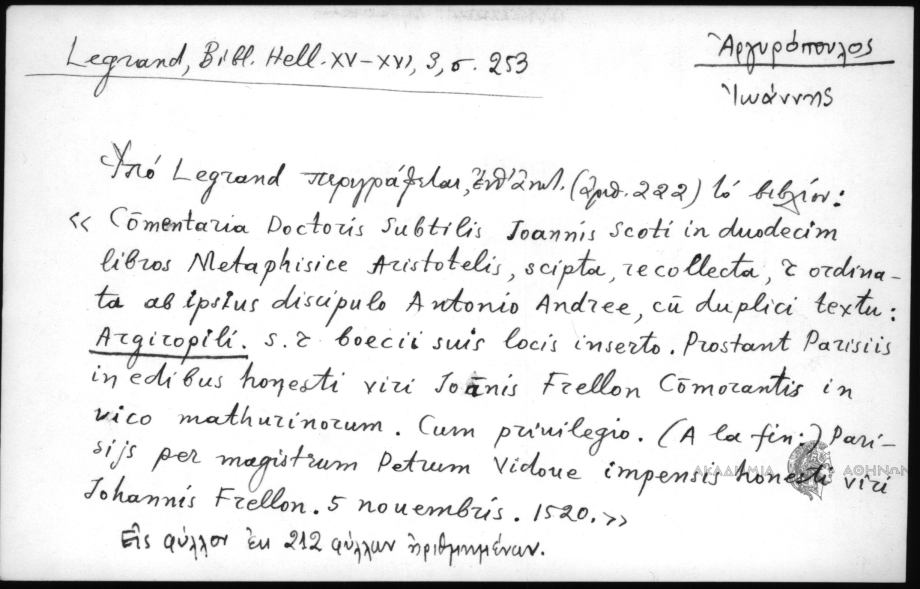 Legrand, Bibl. Hell. XV-XVI, 3, σ. 253
Ἀργυρόπουλος
Ἰωάννης
Ὑπό Legrand περιγράφεται, ὑπ' (ἀριθ. 222) τό βιβλίον:
« Cōmentaria Doctoris Subtilis Joannis Scoti in duodecim
libros Metaphisice Aristotelis, scipta, recollecta, τ ordina-
ta ab ipsius discipulo Antonio Andree, cū duplici textu:
Argiropili. s. τ boecii suis locis inserto. Prostant Parisiis
in edibus honesti viri Joānis Frellon Cōmorantis in
vico mathurinorum. Cum priuilegio. (A la fin:) Pari-
sijs per magistrum Petrum Vidoue impensis honesti viri
Johannis Frellon. 5 nouembris. 1520.»
Εἰς φύλλον ἐκ 212 φύλλων ἠριθμημένων.
ΑΚΑΔΗΜΙΑ ΑΘΗΝΩΝ